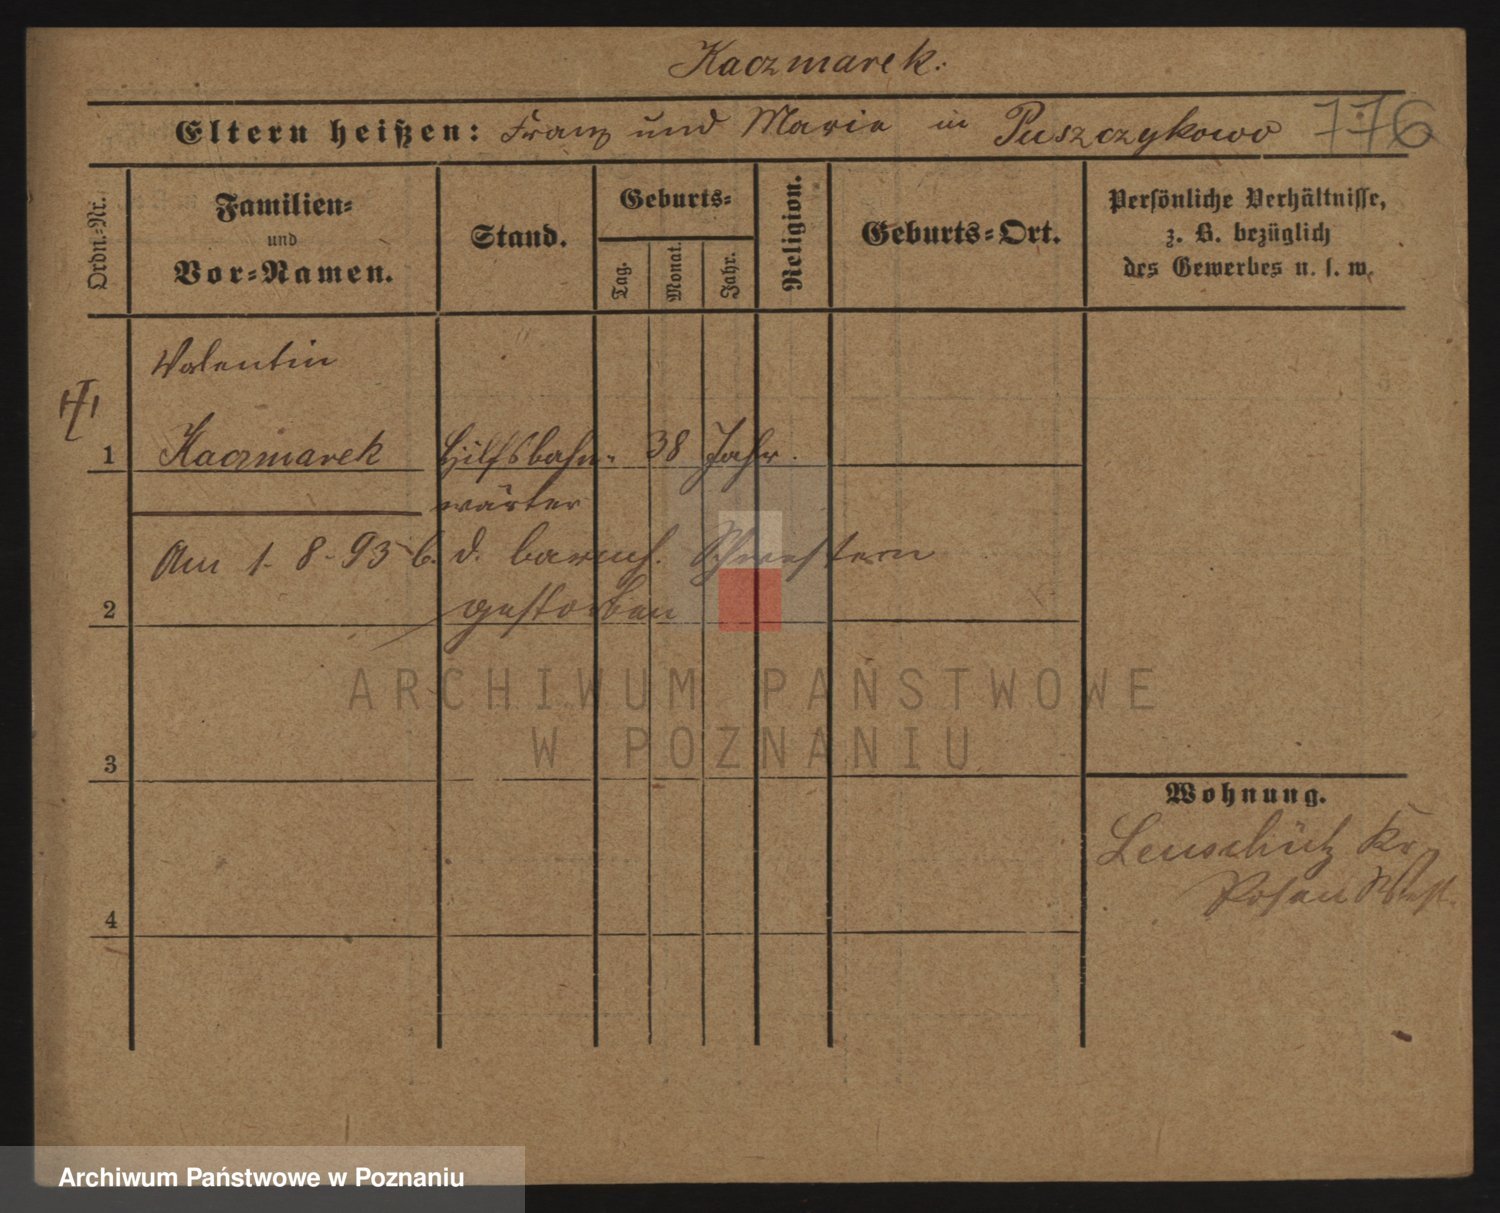 Kaczmarek.
Eltern heißen: Franz und Marie in Puszczykowo 776
Ordn.-Nr.
Familien-
und
Vor-Namen.
Stand.
Geburts-
Tag.
Monat.
Jahr.
Religion.
Geburts-Ort.
Persönliche Verhältnisse,
z. B. bezüglich
des Gewerbes u. s. w.
Valentin
1 Kaczmarek Hilfsbahn- 38 Jahr.
wärter
Am 1. 8. 93 b. d. barmh. Schwestern
2 gestorben
ARCHIWUM PAŃSTWOWE
W POZNANIU
3
Wohnung.
Lenschütz Kr.
Posen West.
4
Archiwum Państwowe w Poznaniu